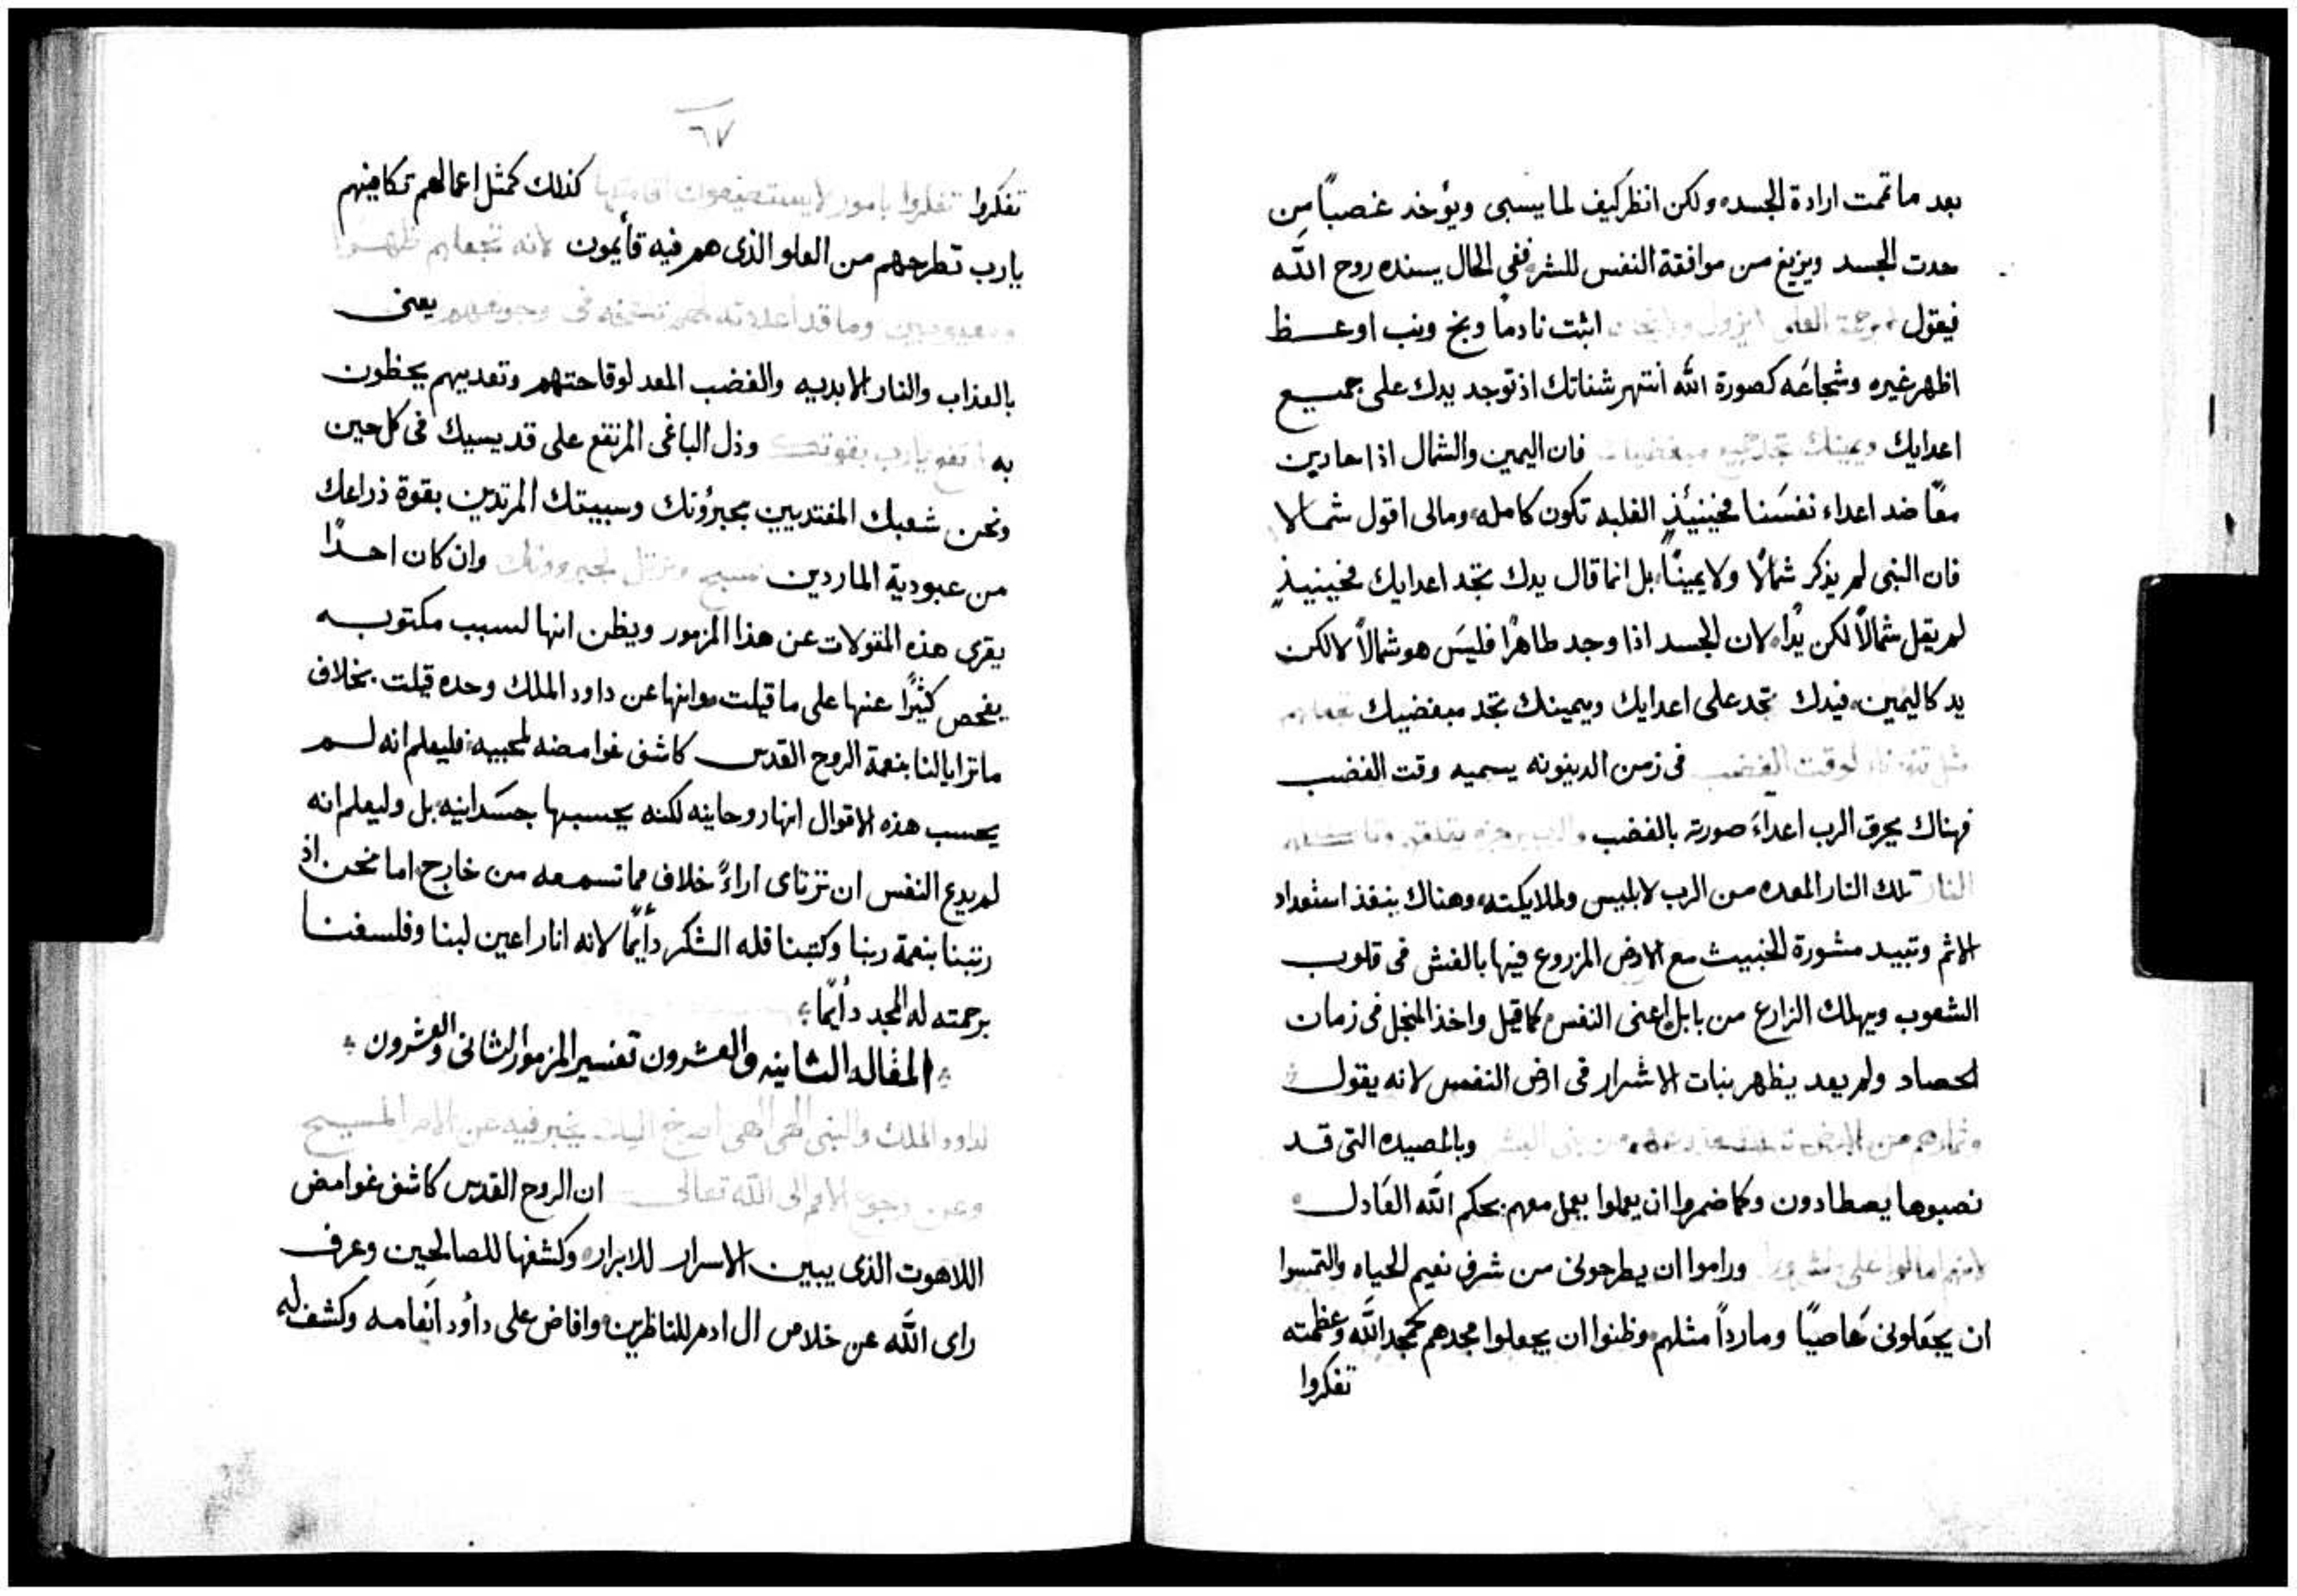 بعد ما تمت ارادة الجسد، ولكن انظر كيف لما يسبى ويؤخذ غصباً من
حدت الجسد ويزيغ من موافقة النفس للشر ففى الحال يسنده روح الله
فيقول اثبت نادماً وبخ ونب اوعظ
اظهر غيره وشجاعَه كصورة الله أنتهر شناتك اذ توجد يدك على جميع
اعدايك ويمينك تجد جميع مبغضيك فان اليمين والشمال اذا حاربن
معًا ضد اعداء نفسَنا فحينيئذٍ الغلبه تكون كامله، ومالى اقول شمالا
فان النبى لم يذكر شمالًا ولا يمينًا، بل انما قال يدك تجد اعدايك فحينيذٍ
لم يقل شمالاً لكن يدًا، لان الجسد اذا وجد طاهرًا فليسَ هو شمالاً لالكن
يد كاليمين، فيدك تجد على اعدايك ويمينك تجد مبغضيك تجعلهم
لوقت الغضب فى زمن الدينونه يسميه وقت الغضب
فهناك يحرق الرب اعداءَ صورته بالغضب
النار تلك النار المعده من الرب لابليس وملايكته، وهناك ينفذ استعداد
الاثم وتبيد مشورة الخبيث مع الارض المزروع فيها بالغش فى قلوب
الشعوب ويهلك الزارع من بابل اعنى النفس كما قيل واخذ المنجل فى زمان
الحصاد ولم يعد يظهر نبات الاشرار فى ارض النفس لانه يقول
وثمارهم من الارض بنى البشر وبالمصيده التى قد
نصبوها يصطادون وكما ضمروا ان يعملوا يعمل معهم بحكم الله العَادل
لانهم امالوا على شرور وراموا ان يطرحونى من شرف نعيم الحياه والتمسوا
ان يجعَلونى عَاصيًا ومارداً مثلهم وظنوا ان يجعلوا مجدهم كمجد الله وعظمته
تفكروا
٦٧
تفكروا تفكروا بامور لا يستطيعون اقامتها كذلك كمثل اعمالهم تكافيهم
يارب تطرحهم من العلو الذى هم فيه قأيمون لانه تجعلهم
وما قد اعددته لهم فى وجوههم يعنى
بالعذاب والنار الابديه والغضب المعد لوقاحتهم وتعديهم يحظون
به ارتفع يارب بقوتك وذل الباغى المرتفع على قديسيك فى كل حين
ونحن شعبك المفتديين بجبرؤتك وسبيتك المرتدين بقوة ذراعك
من عبودية الماردين نسبح ونرتل لجبروتك وان كان احدًا
يقرى هذه المقولات عن هذا المزمور ويظن انها لسبب مكتوب
يفحص كثيرًا عنها على ما قيلت وانها عن داود الملك وحده قيلت، بخلاف
ماترايا لنا بنعمة الروح القدس كاشف غوامضه لمحبيه، فليعلم انه لم
يحسب هذه الاقوال انها روحانيه لكنه يحسبها جسَدانيه، بل وليعلم انه
لم يدع النفس ان ترتاى اراءً خلاف مما تسمعه من خارج، اما نحن اذ
رتبنا بنعمة ربنا وكتبنا فله الشكر دأيمًا لانه انار اعين لبنا وفلسفنا
برحمته له المجد دأيمًا
المقاله الثانيه والعشرون تفسير المزمور الثانى والعشرون
لداود الملك والنبى الهى الهى اصرخ اليك يخبر فيه عن الام المسيح
وعن رجوع الامم الى الله تعالى ان الروح القدس كاشف غوامض
اللاهوت الذى يبين الاسرار للابرار، وكشفها للصالحين وعرف
راى الله عن خلاص ال ادم للناظرين، وافاض على دأود انغامه وكشف له